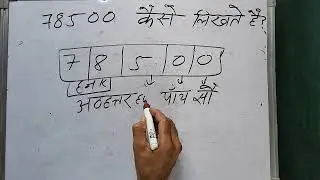 78500 कैसे लिखते है?
7 8 5 0 0
हजार
अठहत्तर ह पाँच सौ